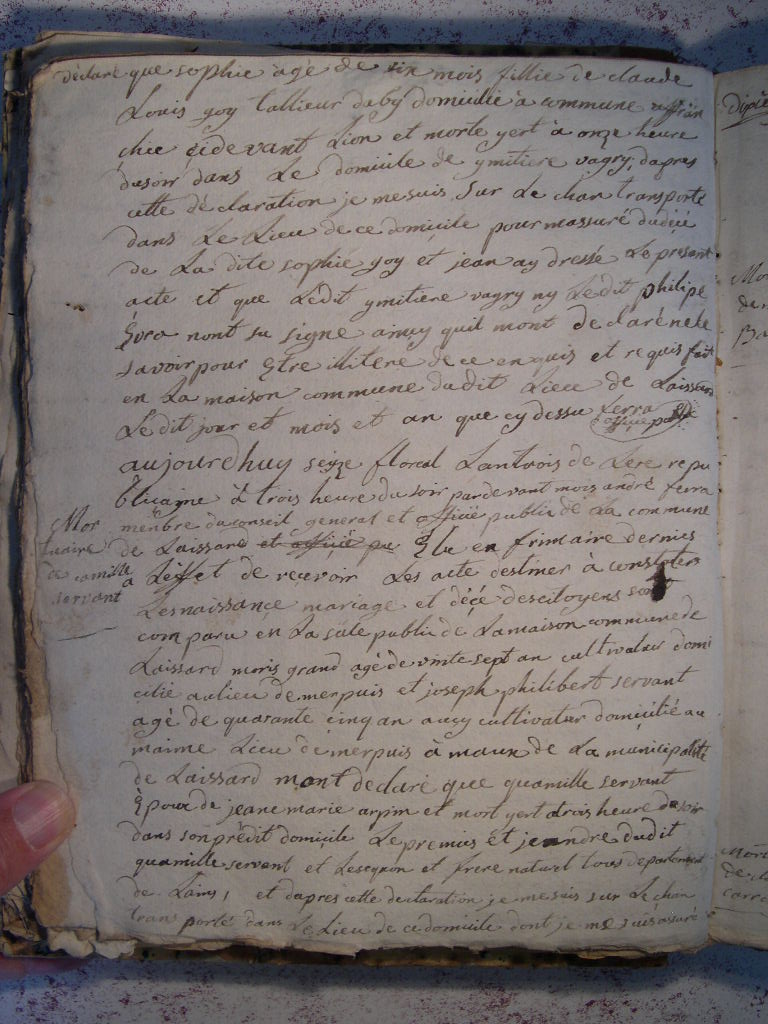 déclaré que sophie agé de six mois fillie de claude
Louis goy tallieur daby domicilié à commune affran
chie cidevant Lion et morte yert à onze heure
dusoir dans Le domicile de ymitiere vagry, dapres
cette déclaration je mesuis Sur Le chan transporté
dans Le Lieu de ce domicile pour massuré dudicé
de La dite sophie goy et jean ay dressé Le présent
acte et que Ledit ymitiere vagry ny Ledit philipe
nont su signe aincy quil mont declaré ne le
savoir pour Être illitere de ce enquis et requis fait
en La maison commune dudit Lieu de Laissard
Le dit jour et mois et an que cy dessu ferra
officié public
aujourdhuy seize floreal Lantrois de Lere repu
blicaine à trois heure dusoir pardevant mois andré ferra
menbre du conseil general et officié public de La commune
de Laissard et officié pu Élu en frimaire dernies
a Léffet de recevoir Les acte destiner à constoters
Mor
tuaire
de camille
servant
Lesnaissance mariage et décé descitoyens sont
comparu en La sale public de Lamaison commune de
Laissard moris grand agé de vinte sept an cultivateur domi
cilié aulieu de merpuis et joseph philibert servant
agé de quarante cinq an aucy cultivateur domicilié au
maime Lieu de merpuis à maux de La municipalité
de Laissard mont declaré que quamille servant
Époux de jeane marie arpin et mort yert a trois heure dusoir
dans son prédit domicile Le premies et jeandre dudit
quamille servent et Lesegnon et frere naturel tous departement
de Lains, et dapres cette declaration je mesuis sur Le chan
transporté dans Le Lieu de ce domicile dont je me suis assuré